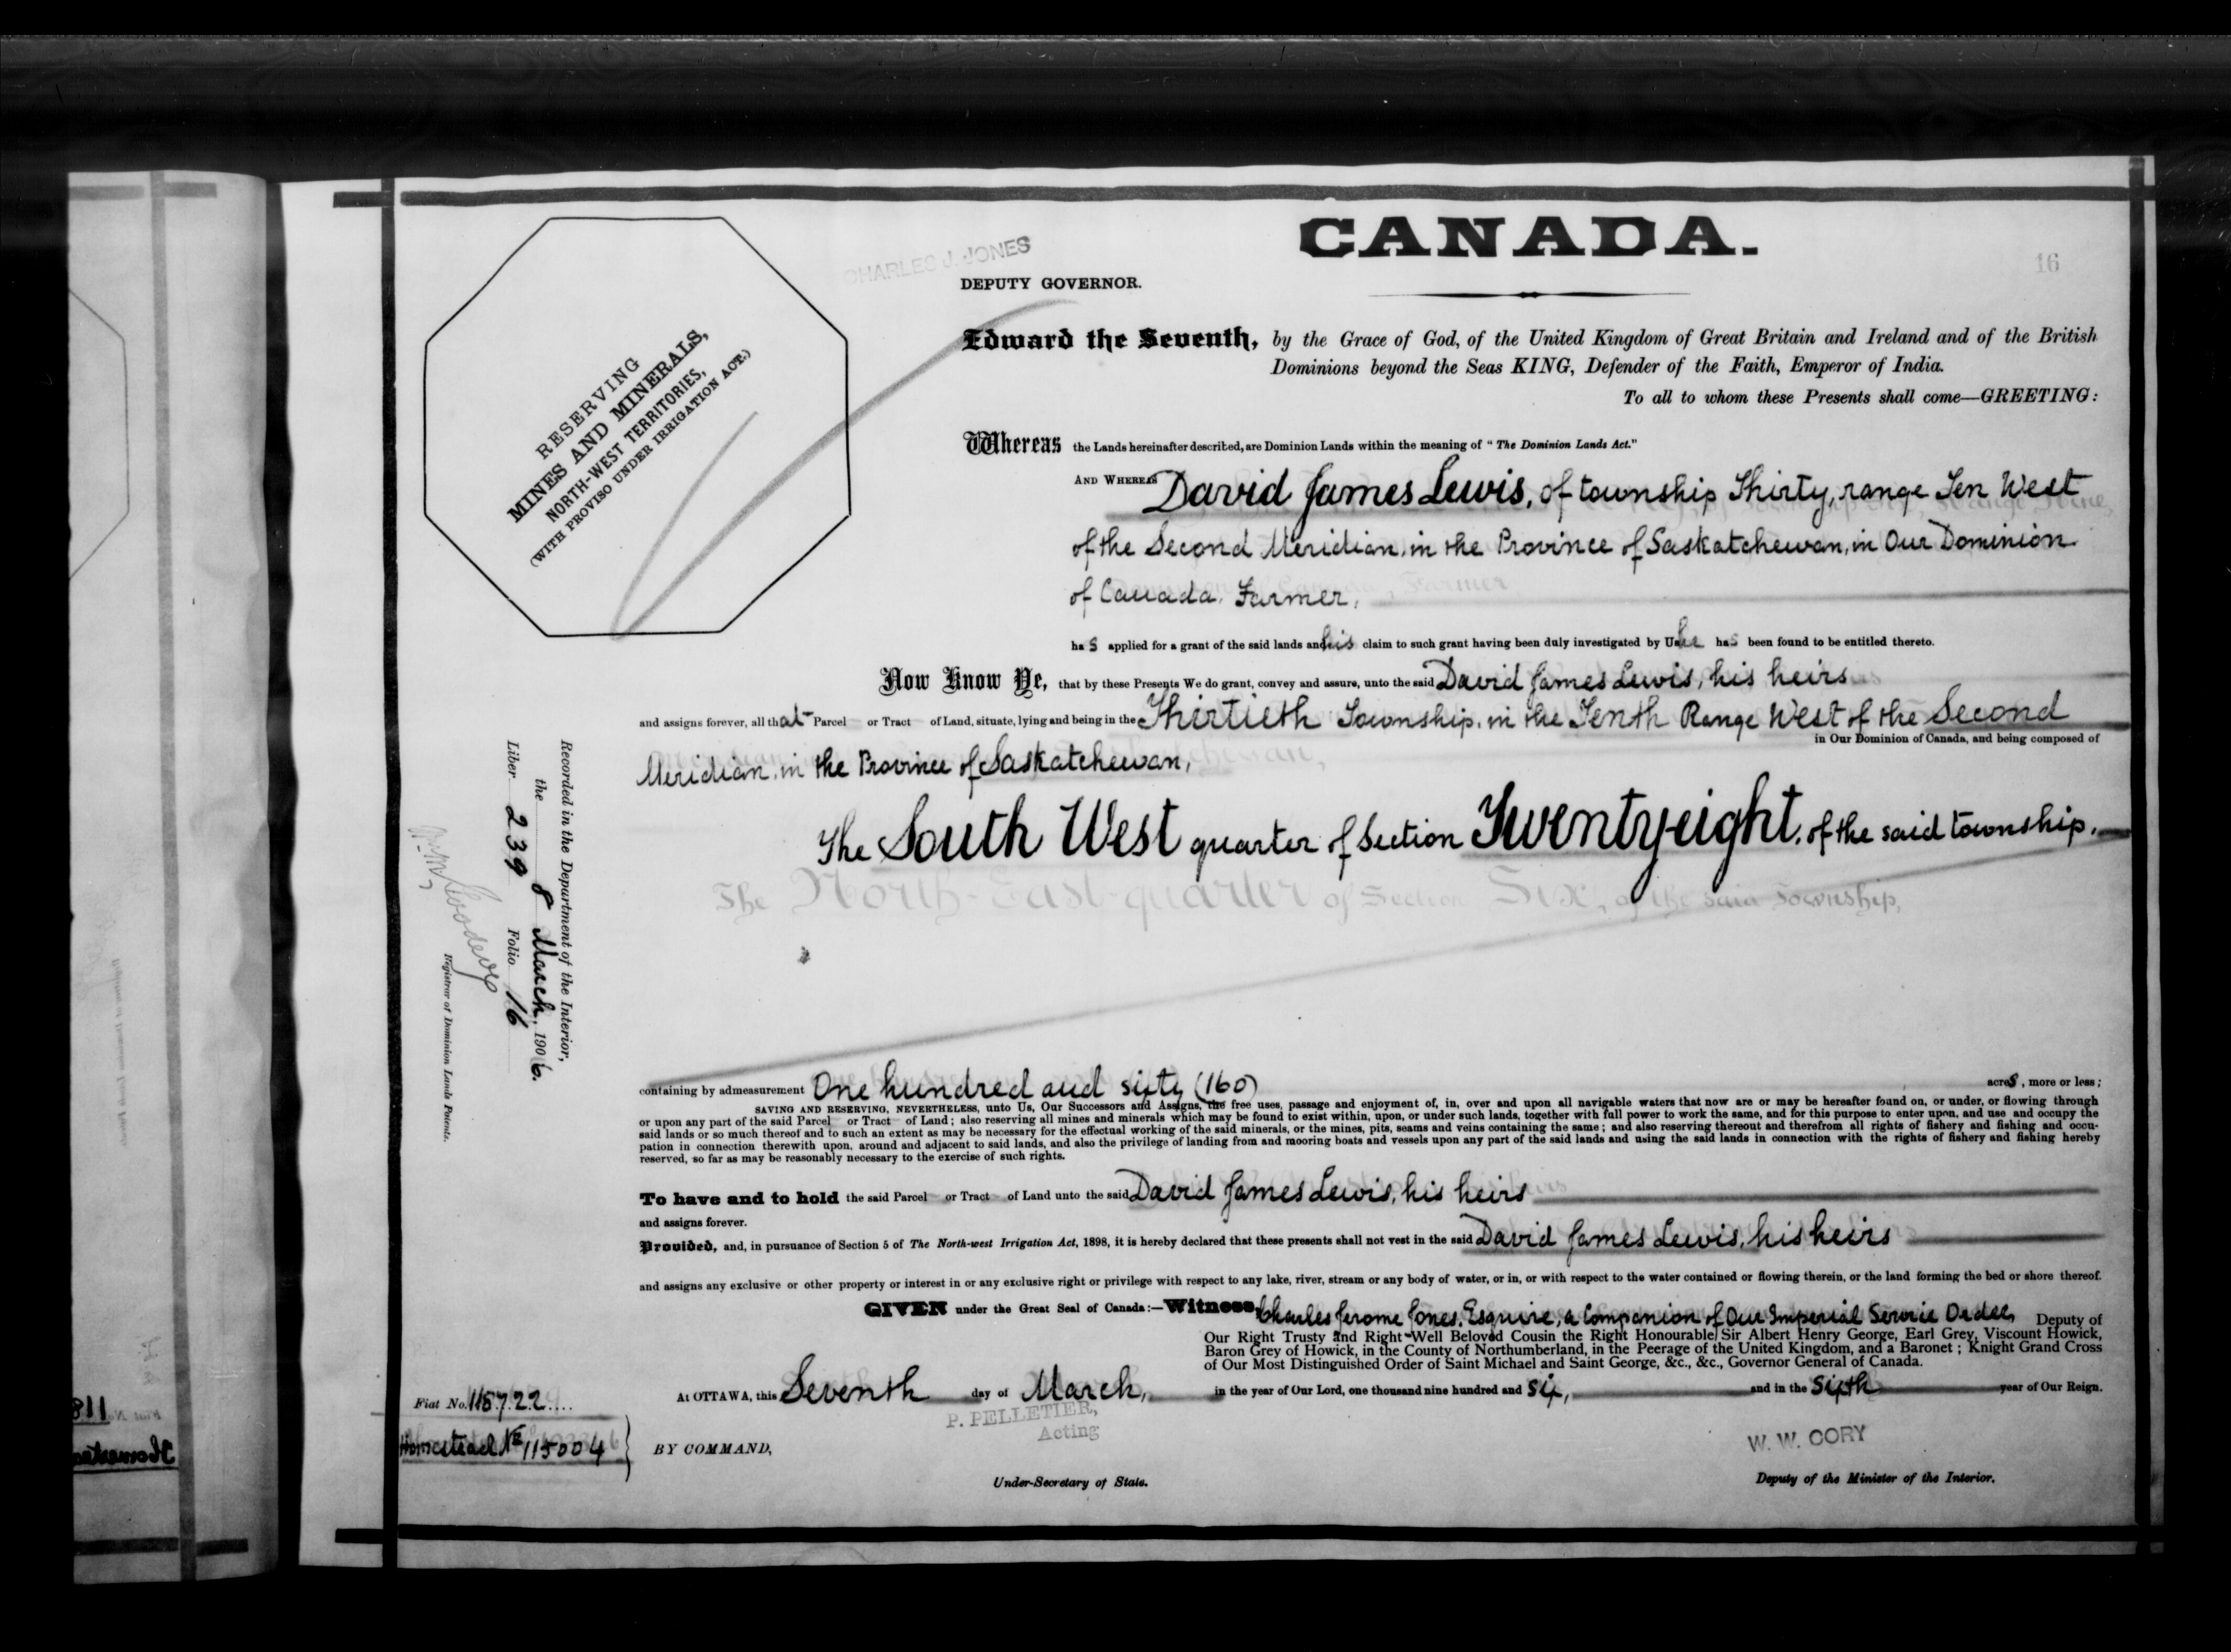 CANADA.
16
CHARLES J. JONES
DEPUTY GOVERNOR.
RESERVING
MINES AND MINERALS,
NORTH-WEST TERRITORIES,
(WITH PROVISO UNDER IRRIGATION ACT.)
Edward the Seventh, by the Grace of God, of the United Kingdom of Great Britain and Ireland and of the British
Dominions beyond the Seas KING, Defender of the Faith, Emperor of India.
To all to whom these Presents shall come—GREETING:
Whereas the Lands hereinafter described, are Dominion Lands within the meaning of "The Dominion Lands Act."
AND WHEREAS David James Lewis, of township Thirty, range Ten West
of the Second Meridian, in the Province of Saskatchewan, in Our Dominion
of Canada, Farmer,
has applied for a grant of the said lands and his claim to such grant having been duly investigated by Us he has been found to be entitled thereto.
Now Know Ye, that by these Presents We do grant, convey and assure, unto the said David James Lewis, his heirs
and assigns forever, all that Parcel or Tract of Land, situate, lying and being in the Thirtieth Township, in the Tenth Range West of the Second
in Our Dominion of Canada, and being composed of
Meridian, in the Province of Saskatchewan,
The South West quarter of Section Twenty-eight, of the said township,
The North-East-quarter of Section Six, of the said Township,
containing by admeasurement One hundred and sixty (160) acres, more or less;
SAVING AND RESERVING, NEVERTHELESS, unto Us, Our Successors and Assigns, the free uses, passage and enjoyment of, in, over and upon all navigable waters that now are or may be hereafter found on, or under, or flowing through
or upon any part of the said Parcel or Tract of Land; also reserving all mines and minerals which may be found to exist within, upon, or under such lands, together with full power to work the same, and for this purpose to enter upon, and use and occupy the
said lands or so much thereof and to such an extent as may be necessary for the effectual working of the said minerals, or the mines, pits, seams and veins containing the same; and also reserving thereout and therefrom all rights of fishery and fishing and occu-
pation in connection therewith upon, around and adjacent to said lands, and also the privilege of landing from and mooring boats and vessels upon any part of the said lands and using the said lands in connection with the rights of fishery and fishing hereby
reserved, so far as may be reasonably necessary to the exercise of such rights.
To have and to hold the said Parcel or Tract of Land unto the said David James Lewis, his heirs
and assigns forever.
Provided, and, in pursuance of Section 5 of The North-west Irrigation Act, 1898, it is hereby declared that these presents shall not vest in the said David James Lewis, his heirs
and assigns any exclusive or other property or interest in or any exclusive right or privilege with respect to any lake, river, stream or any body of water, or in, or with respect to the water contained or flowing therein, or the land forming the bed or shore thereof.
GIVEN under the Great Seal of Canada:—Witness, Charles Jerome Jones, Esquire, a Companion of Our Imperial Service Order, Deputy of
Our Right Trusty and Right Well Beloved Cousin the Right Honourable Sir Albert Henry George, Earl Grey, Viscount Howick,
Baron Grey of Howick, in the County of Northumberland, in the Peerage of the United Kingdom, and a Baronet; Knight Grand Cross
of Our Most Distinguished Order of Saint Michael and Saint George, &c., &c., Governor General of Canada.
At OTTAWA, this Seventh day of March, in the year of Our Lord, one thousand nine hundred and six, and in the Sixth year of Our Reign.
P. PELLETIER,
Acting
BY COMMAND,
Under-Secretary of State.
W. W. CORY
Deputy of the Minister of the Interior.
Fiat No. 115722
Homestead No 115004
Recorded in the Department of the Interior,
the 8 March, 1906.
Liber 239 Folio 16
Registrar of Dominion Lands Patents.